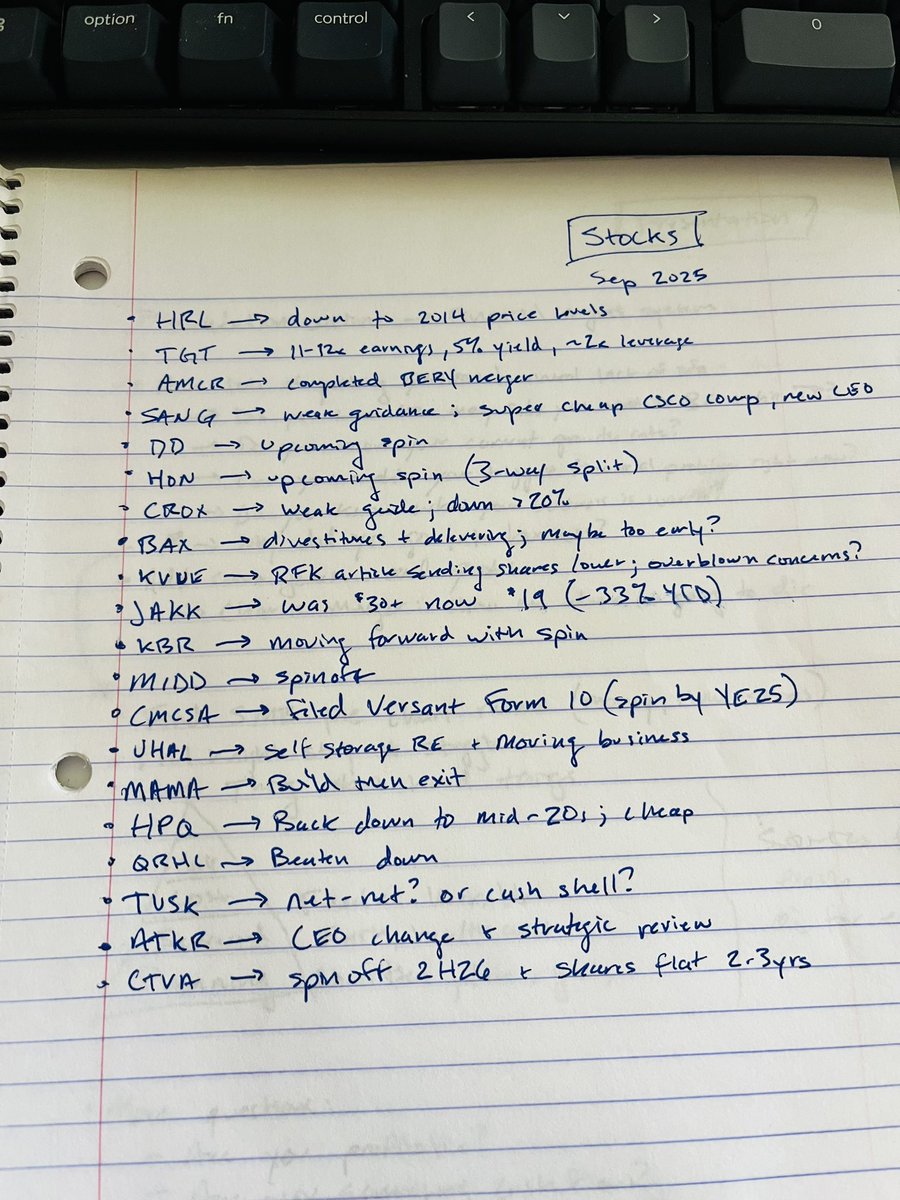 option
fn
control
<
>
0
Stocks
Sep 2025
• HRL → down to 2014 price levels
• TGT → 11-12x earnings, 5% yield, ~2x leverage
• AMCR → completed BERY merger
• SANG → weak guidance; super cheap CSCO comp, new CEO
• DD → upcoming spin
• HON → upcoming spin (3-way split)
• CROX → weak guide; down >20%
• BAX → divestitures + delevering; maybe too early?
• KVUE → RFK article sending shares lower; overblown concerns?
• JAKK → was $30+ now $19 (-33% YTD)
• KBR → moving forward with spin
• MIDD → spinoff
• CMCSA → Filed Versant Form 10 (spin by YE25)
• UHAL → self storage RE + moving business
• MAMA → Build then exit
• HPQ → Back down to mid-20s; cheap
• QRHC → Beaten down
• TUSK → net-net? or cash shell?
• ATKR → CEO change + strategic review
• CTVA → spin off 2H26 + shares flat 2-3yrs